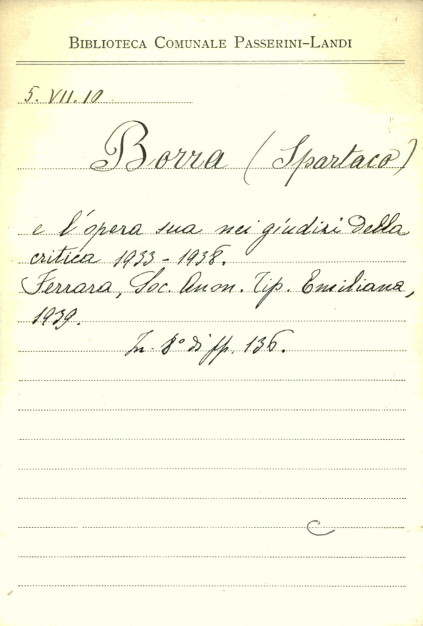 BIBLIOTECA COMUNALE PASSERINI-LANDI
5. VII. 10
Borra (Spartaco)
e l'opera sua nei giudizi della
critica 1933-1938.
Ferrara, Soc. Anon. Tip. Emiliana,
1939.
In 8° di pp. 136.